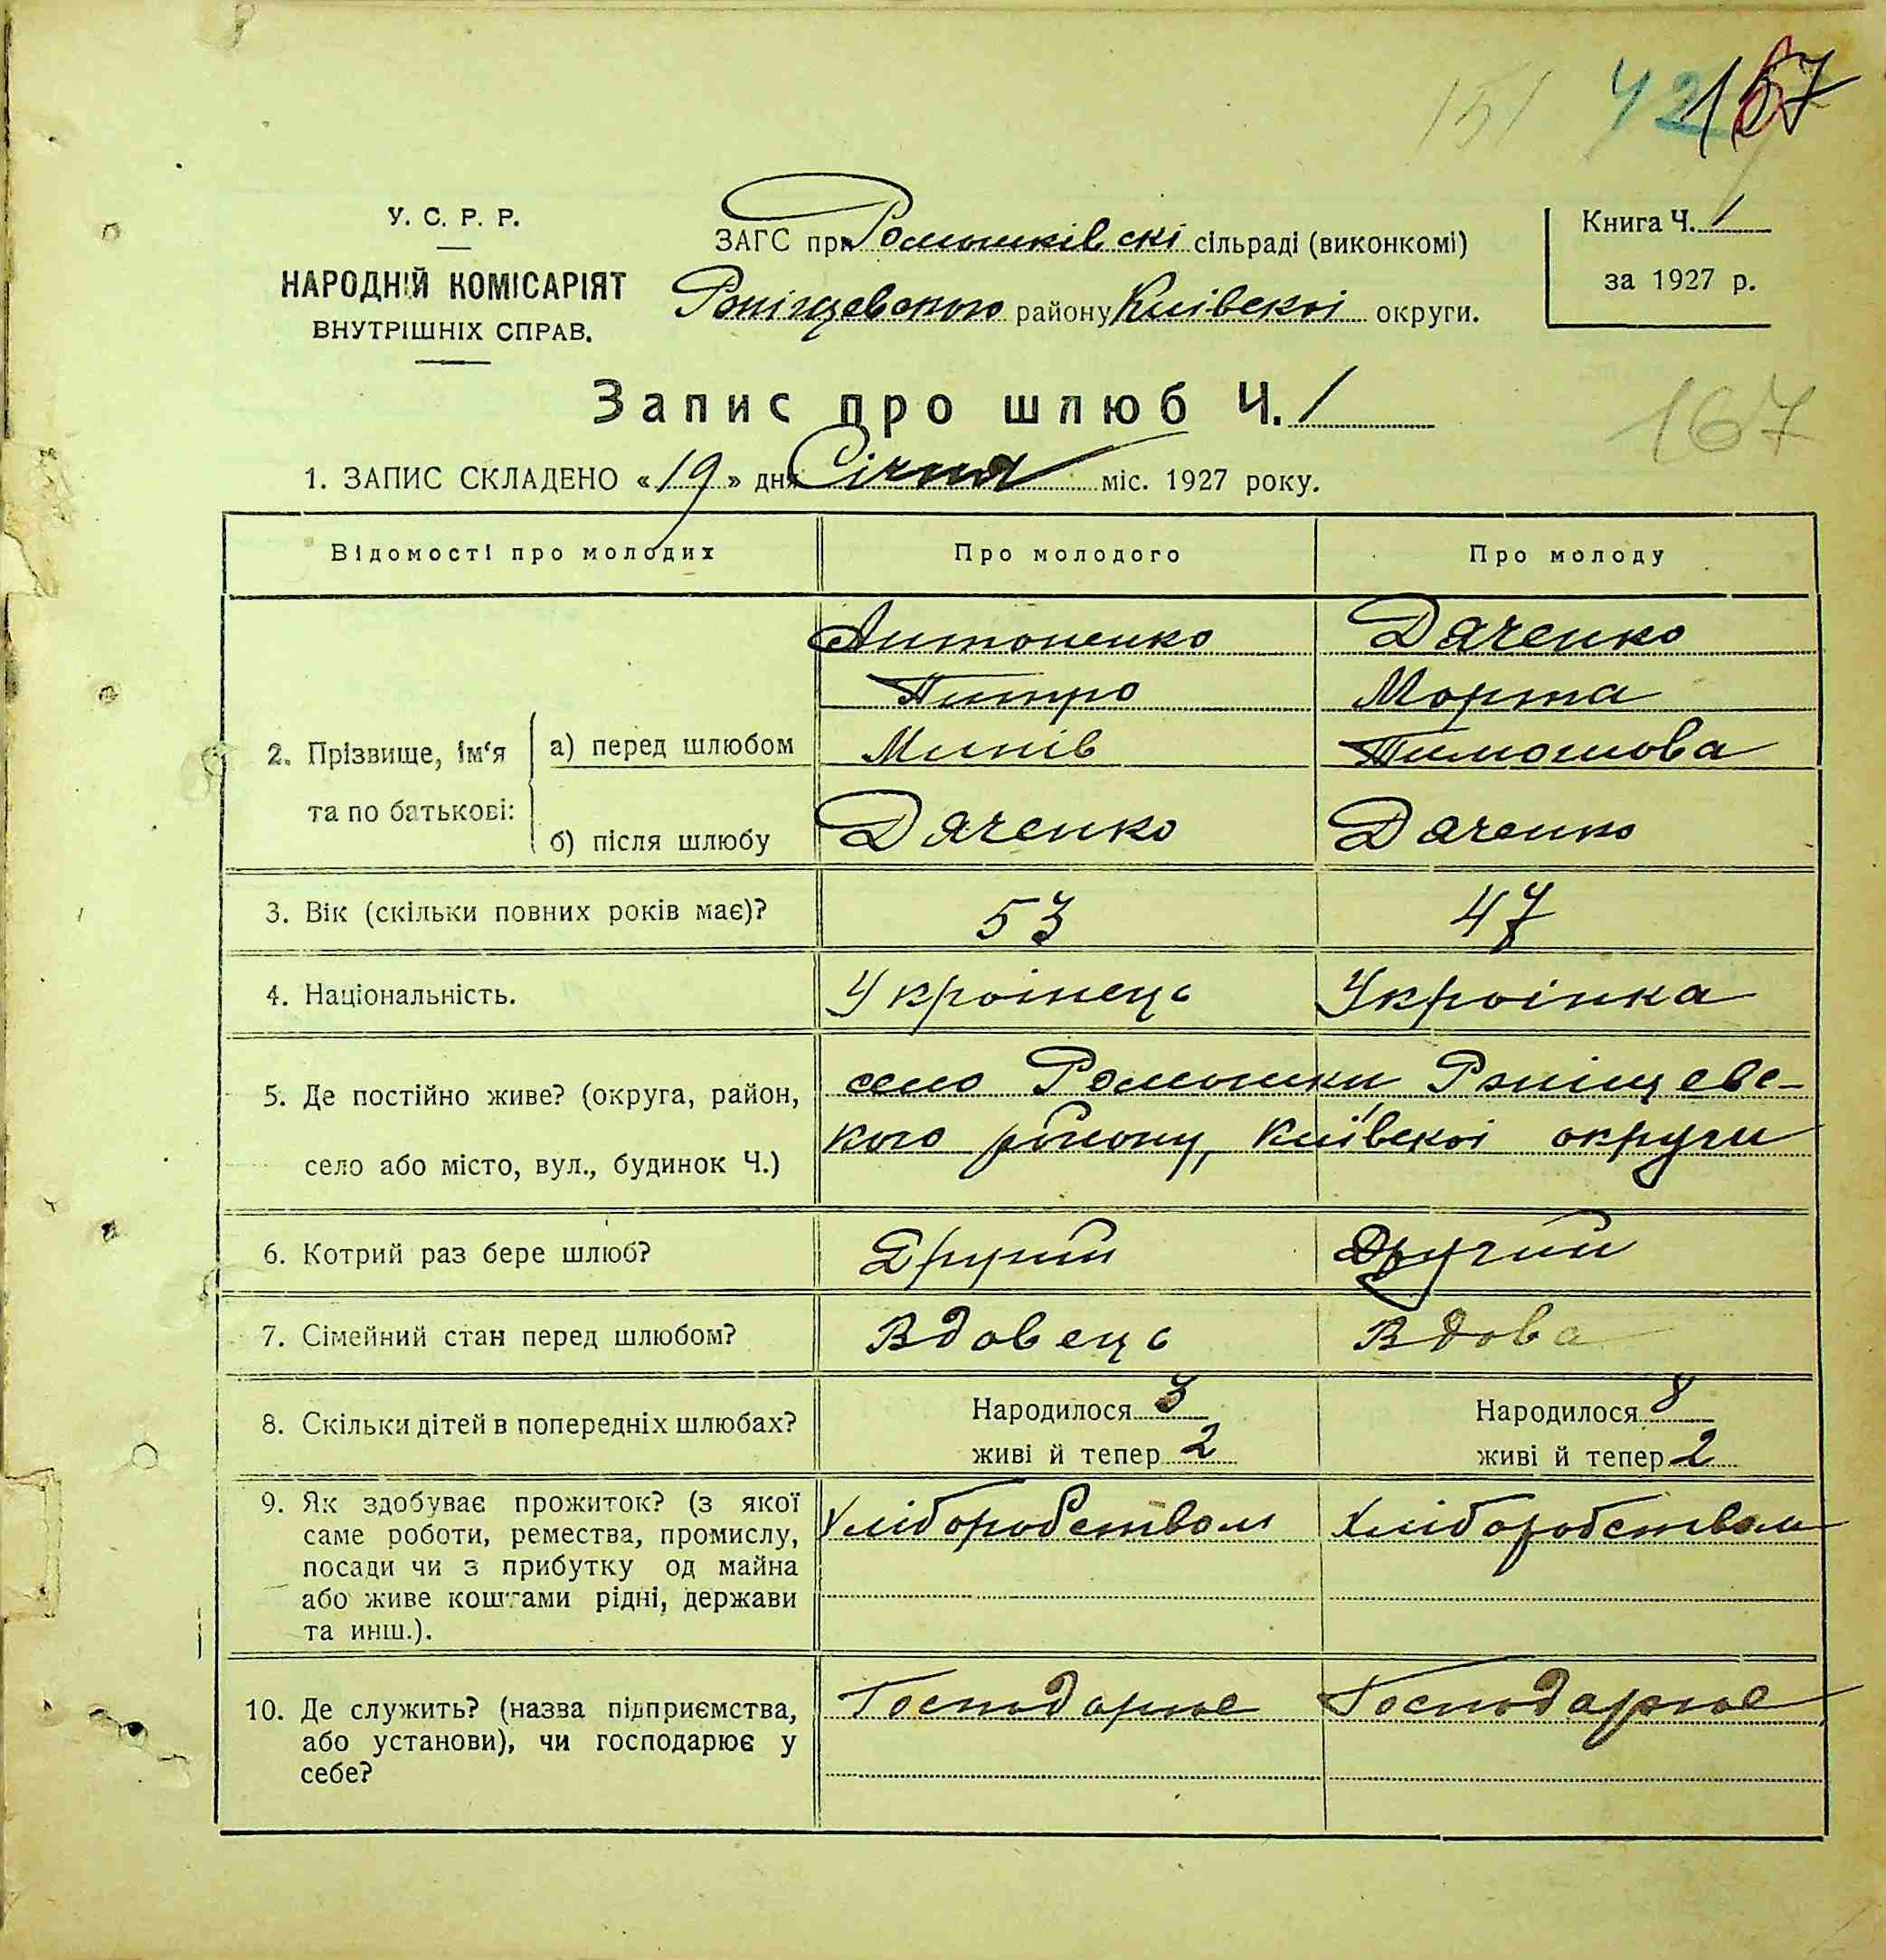 151 42 157
У. С. Р. Р.
НАРОДНІЙ КОМІСАРІЯТ
ВНУТРІШНІХ СПРАВ.
ЗАГС при Ромашківскі сільраді (виконкомі)
Рокіщевського району Київскоі округи.
Книга Ч. 1
за 1927 р.
Запис про шлюб Ч. 1
167
1. ЗАПИС СКЛАДЕНО «19» дня Січня міс. 1927 року.
Відомості про молодих
Про молодого
Про молоду
2. Прізвище, ім‘я та по батькові:
а) перед шлюбом
Антоненко
Питро
Минів
Даченко
Морта
Тимошова
б) після шлюбу
Даченко
Даченко
3. Вік (скільки повних років має)?
53
47
4. Національність.
Украінець
Украінка
5. Де постійно живе? (округа, район,
село або місто, вул., будинок Ч.)
село Ромашки Рокіщевс-
кого району, Київскоі округи
6. Котрий раз бере шлюб?
Другий
Другий
7. Сімейний стан перед шлюбом?
Вдовець
Вдова
8. Скільки дітей в попередніх шлюбах?
Народилося 3
живі й тепер 2
Народилося 8
живі й тепер 2
9. Як здобуває прожиток? (з якої
саме роботи, ремества, промислу,
посади чи з прибутку од майна
або живе коштами рідні, держави
та инш.).
Хліборобством
Хліборобством
10. Де служить? (назва підприємства,
або установи), чи господарює у
себе?
Господарює
Господарює